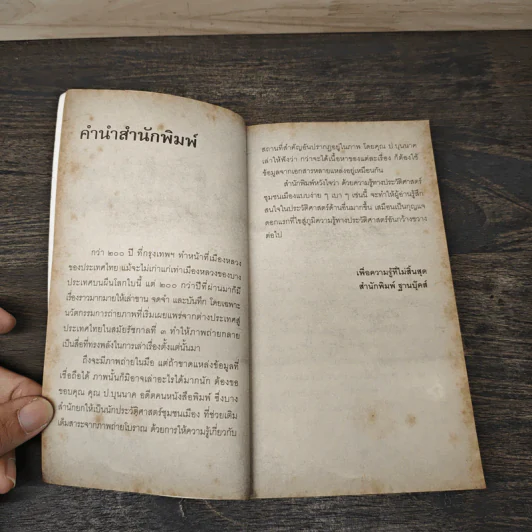 คำนำสำนักพิมพ์
กว่า ๒๐๐ ปี ที่กรุงเทพฯ ทำหน้าที่เมืองหลวง
ของประเทศไทย แม้จะไม่เก่าแก่เท่าเมืองหลวงของบาง
ประเทศบนผืนโลกใบนี้ แต่ ๒๐๐ กว่าปีที่ผ่านมาก็มี
เรื่องราวมากมายให้เล่าขาน จดจำ และบันทึก โดยเฉพาะ
นวัตกรรมการถ่ายภาพที่เริ่มเผยแพร่จากต่างประเทศสู่
ประเทศไทยในสมัยรัชกาลที่ ๓ ทำให้ภาพถ่ายกลาย
เป็นสื่อที่ทรงพลังในการเล่าเรื่องตั้งแต่นั้นมา
ถึงจะมีภาพถ่ายในมือ แต่ถ้าขาดแหล่งข้อมูลที่
เชื่อถือได้ ภาพนั้นก็มิอาจเล่าอะไรได้มากนัก ต้องขอ
ขอบคุณ คุณ ป.บุนนาค อดีตคนหนังสือพิมพ์ ซึ่งบาง
สำนักยกให้เป็นนักประวัติศาสตร์ชุมชนเมือง ที่ช่วยเติม
เต็มสาระจากภาพถ่ายโบราณ ด้วยการให้ความรู้เกี่ยวกับ
สถานที่สำคัญอันปรากฏอยู่ในภาพ โดยคุณ ป.บุนนาค
เล่าให้ฟังว่า กว่าจะได้เนื้อหาของแต่ละเรื่อง ก็ต้องใช้
ข้อมูลจากเอกสารหลายแหล่งอยู่เหมือนกัน
สำนักพิมพ์หวังใจว่า ด้วยความรู้ทางประวัติศาสตร์
ชุมชนเมืองแบบง่าย ๆ เบา ๆ เช่นนี้ จะทำให้ผู้อ่านรู้สึก
สนใจในประวัติศาสตร์ด้านอื่นมากขึ้น เสมือนเป็นกุญแจ
ดอกแรกที่ไขสู่ภูมิความรู้ทางประวัติศาสตร์อันกว้างขวาง
ต่อไป
เพื่อความรู้ที่ไม่สิ้นสุด
สำนักพิมพ์ ฐานบุ๊คส์